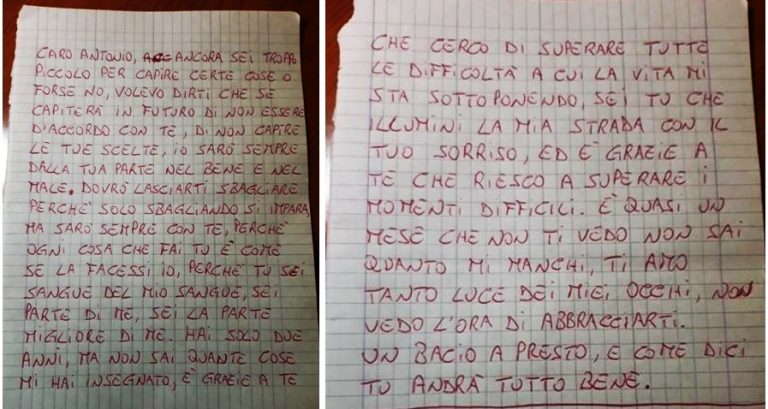 CARO ANTONIO, ANCORA SEI TROPPO
PICCOLO PER CAPIRE CERTE COSE O
FORSE NO, VOLEVO DIRTI CHE SE
CAPITERÀ IN FUTURO DI NON ESSERE
D'ACCORDO CON TE, DI NON CAPIRE
LE TUE SCELTE, IO SARÒ SEMPRE
DALLA TUA PARTE NEL BENE E NEL
MALE. DOVRÒ LASCIARTI SBAGLIARE
PERCHÈ SOLO SBAGLIANDO SI IMPARA,
MA SARÒ SEMPRE CON TE, PERCHÈ
OGNI COSA CHE FAI TU È COME
SE LA FACESSI IO, PERCHÈ TU SEI
SANGUE DEL MIO SANGUE, SEI
PARTE DI ME, SEI LA PARTE
MIGLIORE DI ME. HAI SOLO DUE
ANNI, MA NON SAI QUANTE COSE
MI HAI INSEGNATO, È GRAZIE A TE
CHE CERCO DI SUPERARE TUTTE
LE DIFFICOLTÀ A CUI LA VITA MI
STA SOTTOPONENDO, SEI TU CHE
ILLUMINI LA MIA STRADA CON IL
TUO SORRISO, ED È GRAZIE A
TE CHE RIESCO A SUPERARE I
MOMENTI DIFFICILI. È QUASI UN
MESE CHE NON TI VEDO NON SAI
QUANTO MI MANCHI, TI AMO
TANTO LUCE DEI MIEI OCCHI, NON
VEDO L'ORA DI ABBRACCIARTI.
UN BACIO A PRESTO, E COME DICI
TU ANDRÀ TUTTO BENE.